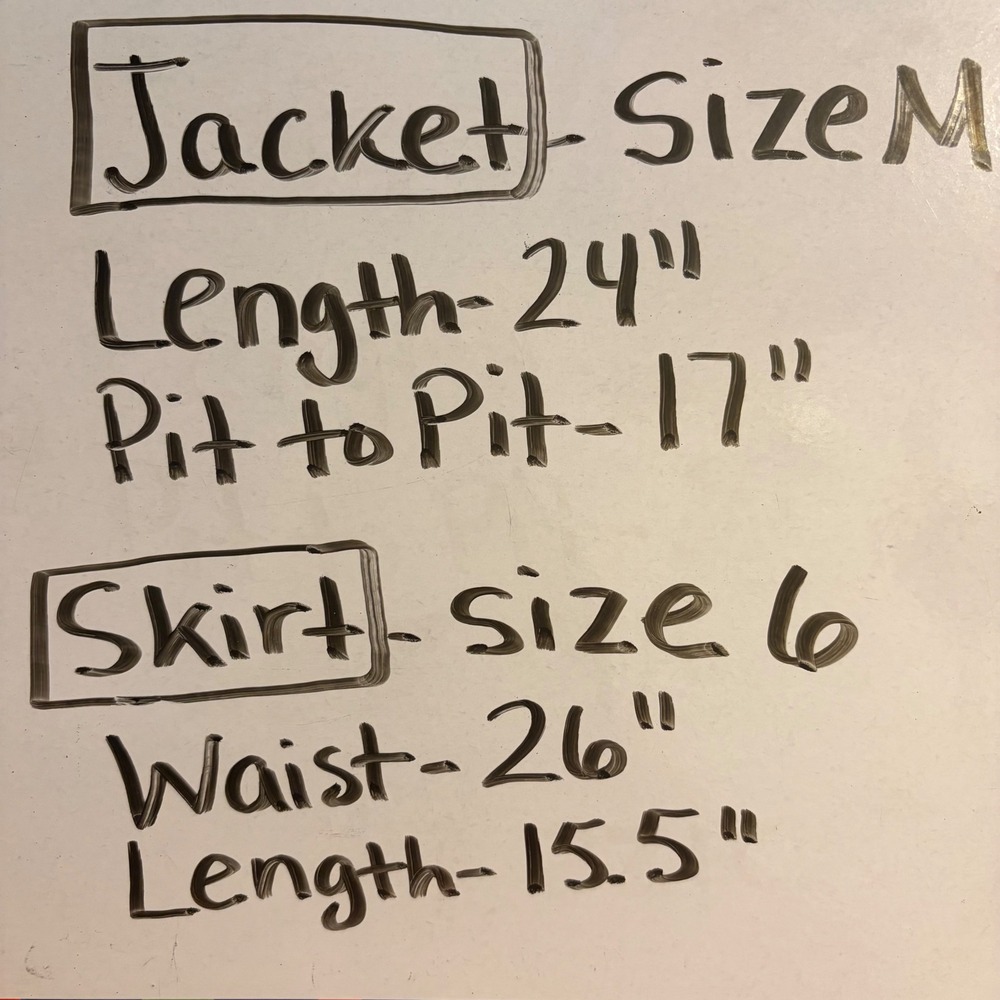 Jacket - Size M
Length - 24"
Pit to Pit - 17"
Skirt - size 6
Waist - 26"
Length - 15.5"